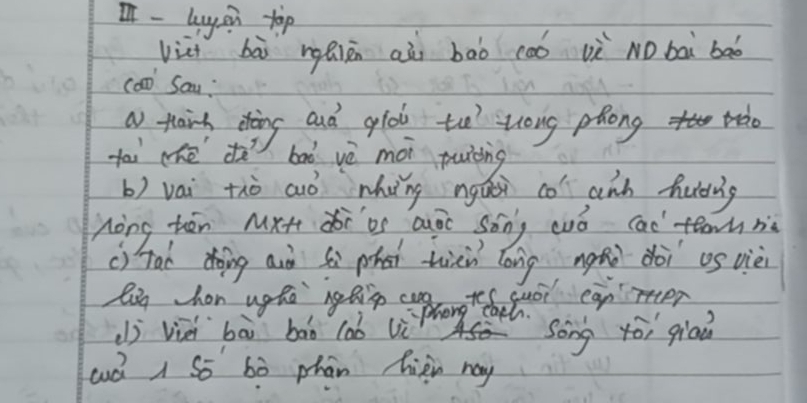 III - Luyện tập
Viết bài nghiên cứu báo cáo về ND bài báo
cáo sau:
a) Hành động của giới trẻ trong phong trào
tái chế để bảo vệ môi trường
b) Vai trò của những người có ảnh hưởng
rộng trên MXH đối vs cuộc sống của các thanh niên
c) Tác động của sự phát triển công nghệ đối vs việc
lựa chọn nghề nghiệp của hs cuối cấp THPT
d) Viết bài báo cáo về phong cách sống tối giản
của 1 số bộ phận hiện nay